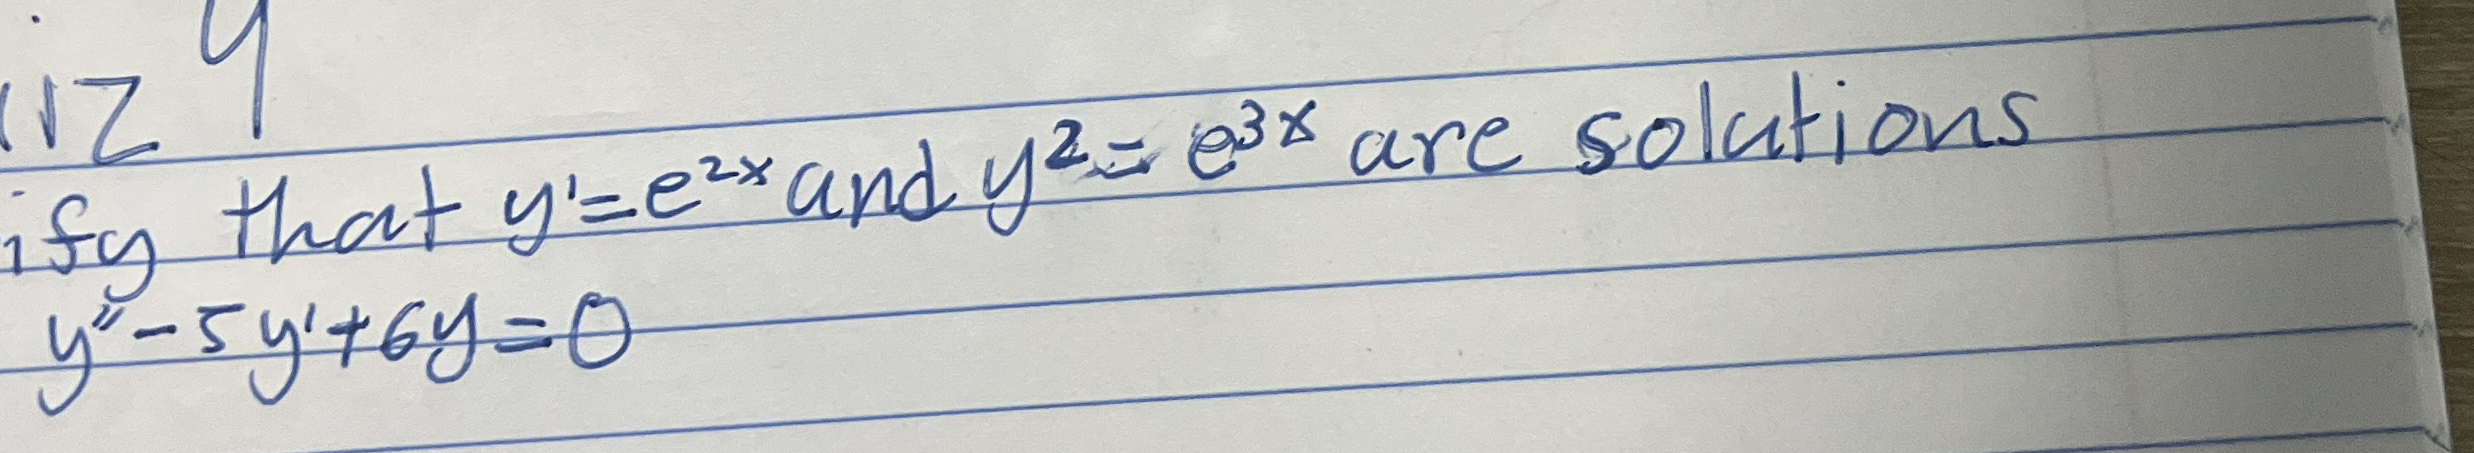 iz 4
ify that y'=e^2x and y^2=e^3x are solutions
y"-5y'+6y=0